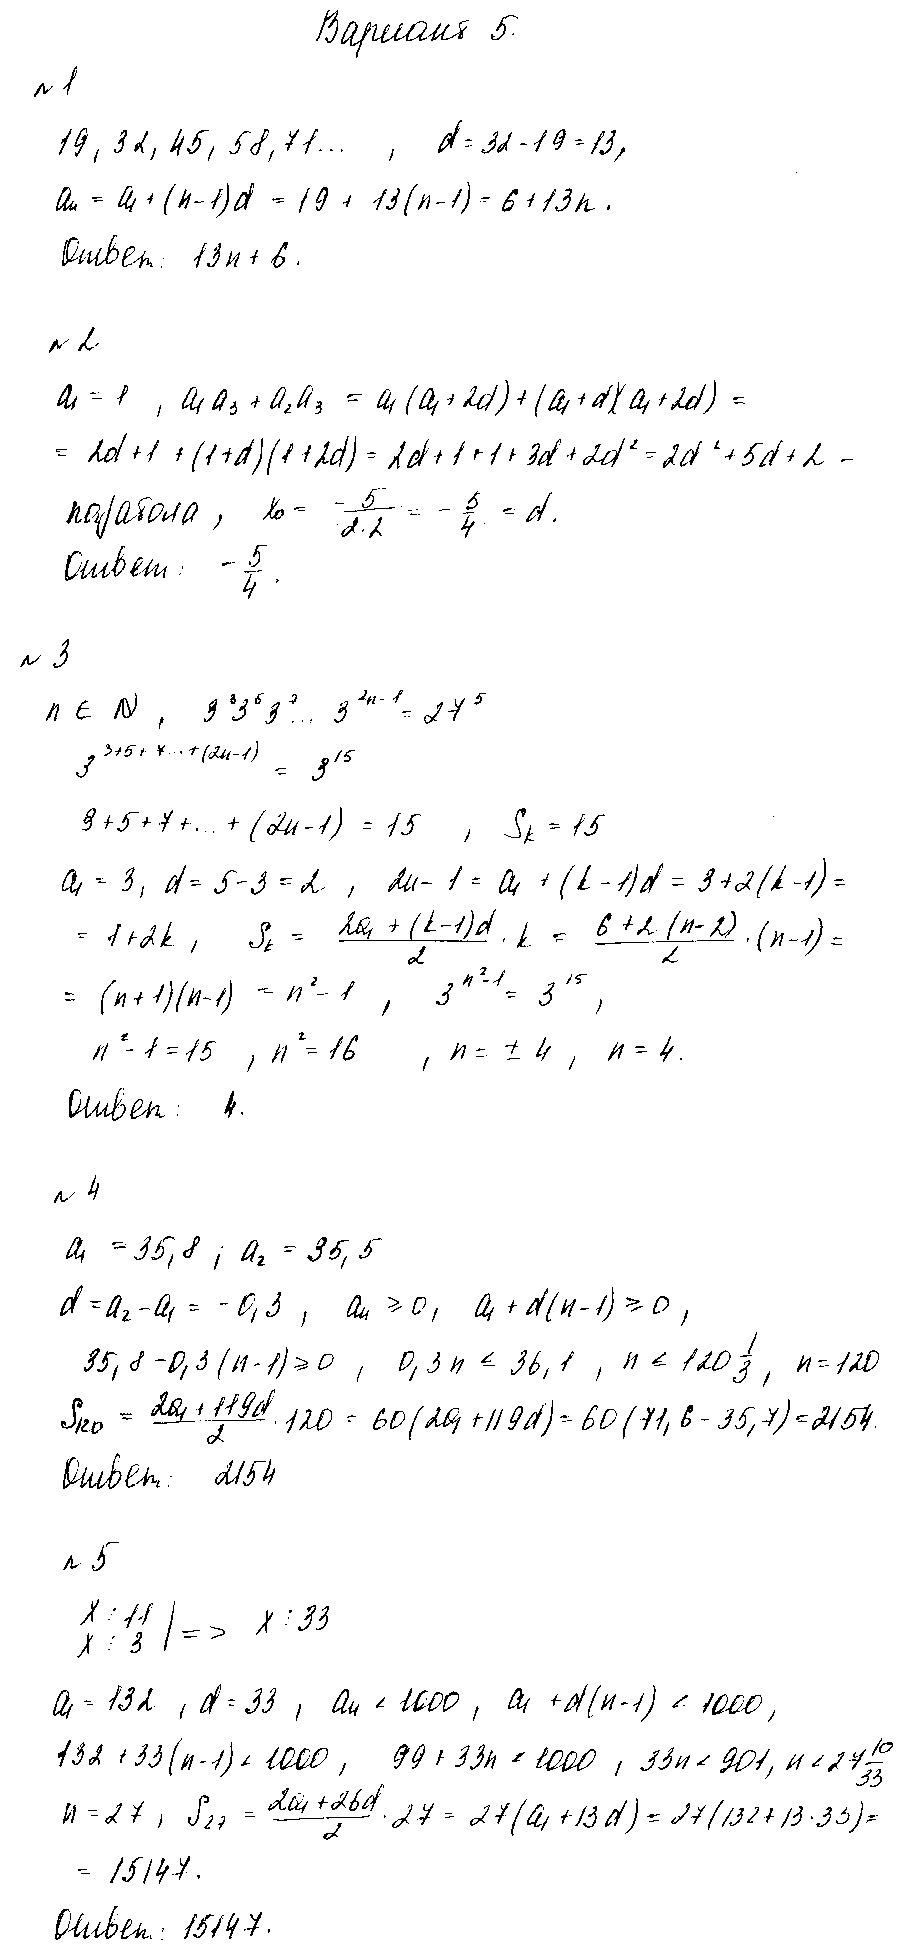 Вариант 5.
№ 1
19, 32, 45, 58, 71... , d = 32 - 19 = 13,
aₙ = a₁ + (n-1)d = 19 + 13(n-1) = 6 + 13n.
Ответ: 13n + 6.
№ 2
a₁ = 1 , a₁a₃ + a₂a₃ = a₁(a₁+2d) + (a₁+d)(a₁+2d) =
= 2d+1 + (1+d)(1+2d) = 2d+1+1+3d+2d² = 2d²+5d+2 -
парабола, x₀ = -5/(2·2) = -5/4 = d.
Ответ: -5/4.
№ 3
n ∈ N , 3³3⁵3⁷...3²ⁿ⁻¹ = 27⁵
3^(3+5+7...+(2n-1)) = 3¹⁵
3+5+7+...+(2n-1) = 15 , Sₖ = 15
a₁ = 3, d = 5-3 = 2 , 2n-1 = a₁ + (k-1)d = 3+2(k-1) =
= 1+2k , Sₖ = (2a₁+(k-1)d)/2 · k = (6+2(n-2))/2 · (n-1) =
= (n+1)(n-1) = n²-1 , 3^(n²-1) = 3¹⁵ ,
n²-1 = 15 , n² = 16 , n = ± 4 , n = 4.
Ответ: 4.
№ 4
a₁ = 35,8 ; a₂ = 35,5
d = a₂-a₁ = -0,3 , aₙ ≥ 0, a₁ + d(n-1) ≥ 0 ,
35,8-0,3(n-1) ≥ 0 , 0,3n ≤ 36,1 , n ≤ 120 1/3 , n = 120
S₁₂₀ = (2a₁+119d)/2 · 120 = 60(2a₁+119d) = 60(71,6-35,7) = 2154.
Ответ: 2154
№ 5
x ⋮ 11
x ⋮ 3 | => x ⋮ 33
a₁ = 132 , d = 33 , aₙ < 1000 , a₁ + d(n-1) < 1000 ,
132 + 33(n-1) < 1000 , 99 + 33n < 1000 , 33n < 901, n < 27 10/33
n = 27 , S₂₇ = (2a₁+26d)/2 · 27 = 27(a₁+13d) = 27(132+13·33) =
= 15147.
Ответ: 15147.